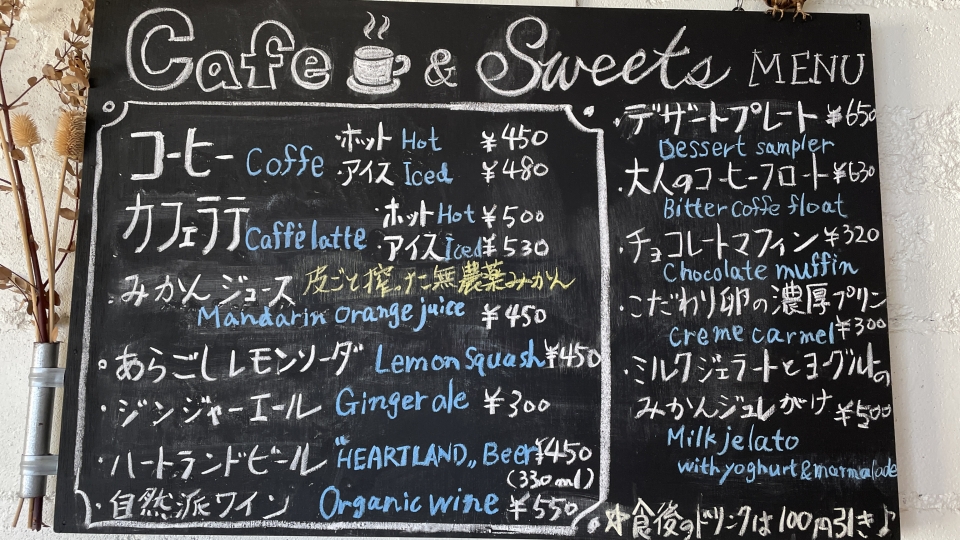 Cafe & Sweets MENU
コーヒー Coffe ・ホット Hot ¥450
・アイス Iced ¥480
カフェラテ Caffè latte ・ホット Hot ¥500
・アイス Iced ¥530
・みかんジュース 皮ごと搾った無農薬みかん
Mandarin orange juice ¥450
・あらごしレモンソーダ Lemon Squash ¥450
・ジンジャーエール Ginger ale ¥300
・ハートランドビール "HEARTLAND„ Beer ¥450
(330ml)
・自然派ワイン Organic wine ¥550
・デザートプレート ¥650
Dessert sampler
・大人のコーヒーフロート ¥630
Bitter coffe float
・チョコレートマフィン ¥320
Chocolate muffin
・こだわり卵の濃厚プリン
creme carmel ¥300
・ミルクジェラートとヨーグルトの
みかんジュレがけ ¥500
Milk jelato
with yoghurt & marmalade
☆食後のドリンクは100円引き♪